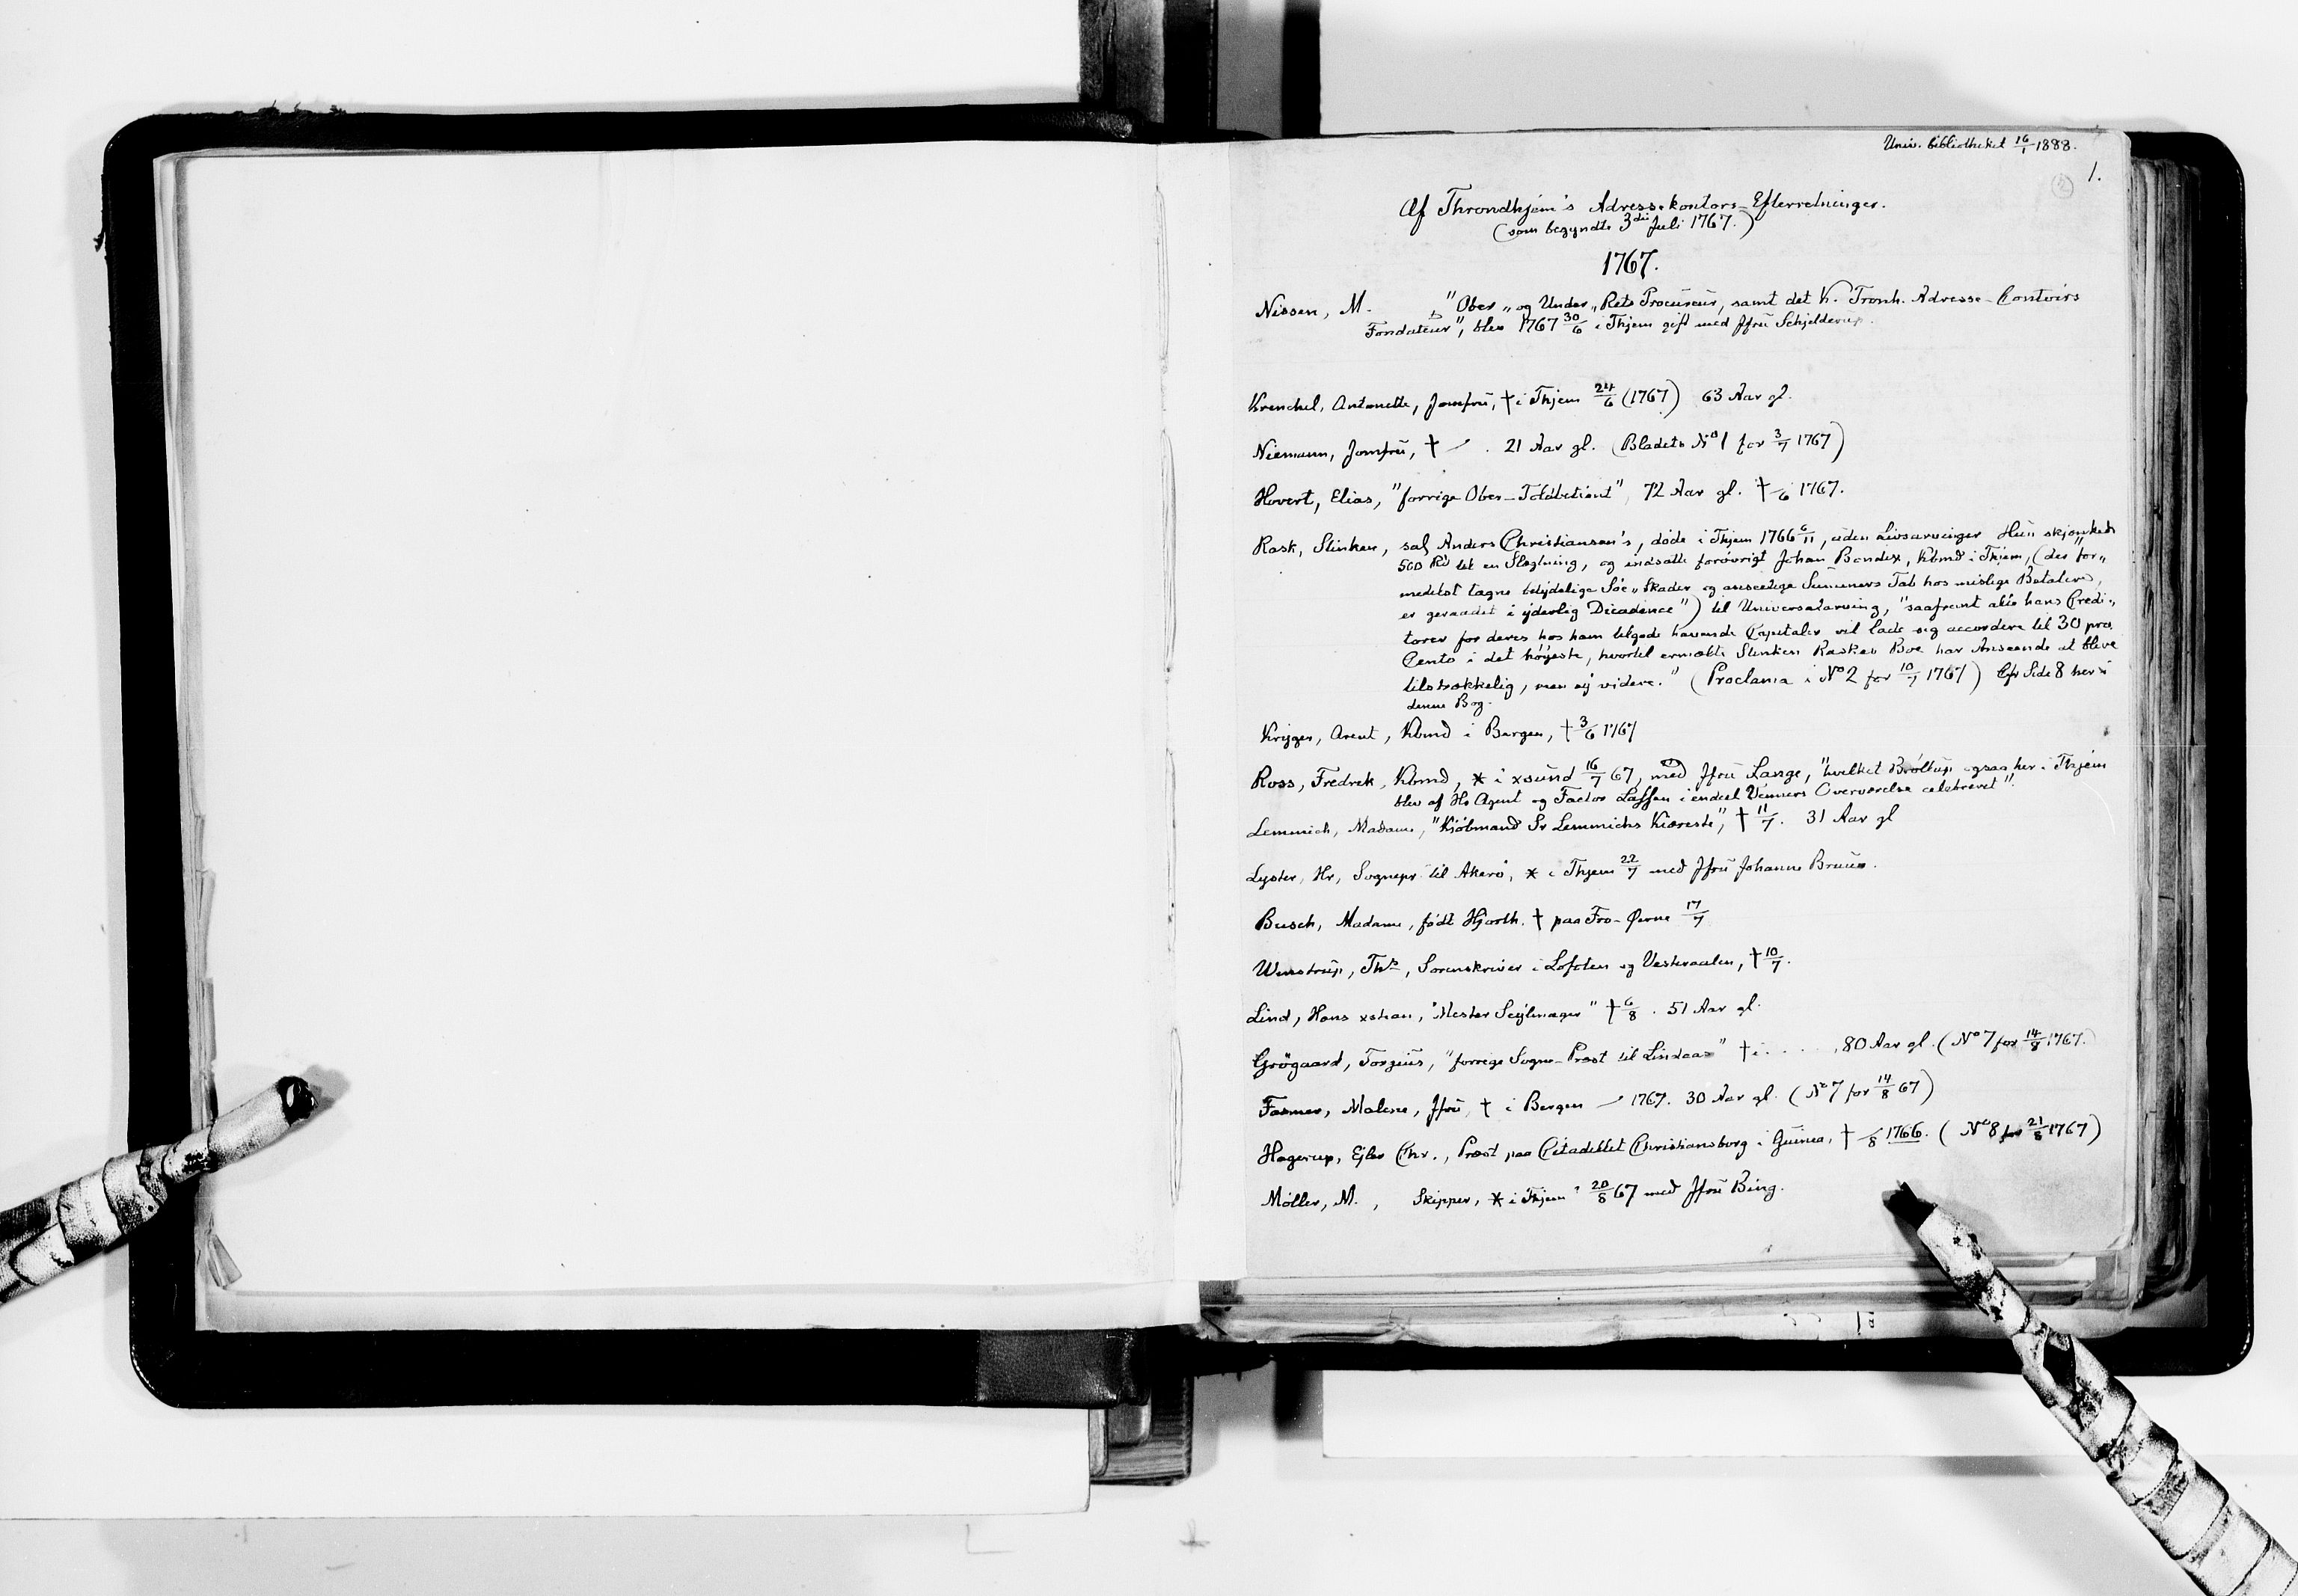 Univ. bibliotheket 16/1 1888.
1.
(2)
Af Throndhjem's Adressekontors-Efterretninger.
(som begyndte 3die Juli 1767.)
1767.
Nissen, M. "Ober„ og Under„Rets Procureur, samt det K. Tronh. Adresse-Contoirs
Fondateur", blev 1767 30/6 i Thjem gift med Jfru Schjelderup.
Krenckel, Antonette, Jomfru, † i Thjem 24/6 (1767) 63 Aar gl.
Niemann, Jomfru, † 21 Aar gl. (Bladets No 1 for 3/7 1767)
Hovert, Elias, "forrige Ober-Toldbetient", 72 Aar gl. † /6 1767.
Rask, Stinken, sal Anders Christiansen's, døde i Thjem 1766 6/11, uden Livsarvinger Hun skjænkede
500 Rd til en Slægtning, og indsatte forøvrigt Johan Bendix, Kbmd i Thjem, (der for„
medelst tagne betydelige Söe„Skader og anseelige Summers Tab hos mislige Betalere,
er geraadet i yderlig Decadence") til Universalarving, "saafremt alle hans Credi„
torer for deres hos ham tilgode havende Capitaler vil lade sig accordere til 30 pro
Cento i det høyeste, hvortil ermeldte Stinken Raskes Boe har Anseende at blive
tilstrækkelig, men ey videre." (Proclama i No 2 for 10/7 1767) Cfr Side 8 her i
denne Bog.
Kryger, Arent, Kbmd i Bergen, † 3/6 1767
Ross, Fredrik, Kbmd, * i xsund 16/7 67, med Jfru Lange, "hvilket Bröllup ogsaa her i Thjem
blev af Hr Agent og Factor Lassen i endeel Venners Overværelse celebreret".
Lemmich, Madame, "Kjöbmand Sr Lemmichs Kiæreste", † 11/7. 31 Aar gl
Lyster, Hr, Sognepr til Akerö, * i Thjem 22/7 med Jfru Johanne Bruus.
Busch, Madame, født Hjorth. † paa Fro-Øerne 17/7
Ths, Sorenskriver i Lofoten og Vesteraalen, † 10/7.
Lind, Hans xstian, "Mester Seylmager" † 6/8. 51 Aar gl.
Grögaard, Torgius, "forrige Sogne-Præst til Lindaas" † i . . . . , 80 Aar gl. (No 7 for 14/8 1767.)
Fasmer, Malene, Jfru, † i Bergen 1767. 30 Aar gl. (No 7 for 14/8 67)
Hagerup, Ejler Chr., Præst paa Citadellet Christiansborg i Guinea, † /8 1766. (No 8 for 21/8 1767)
Möller, M., Skipper, * i Thjem 20/8 67 med Jfru Bing.